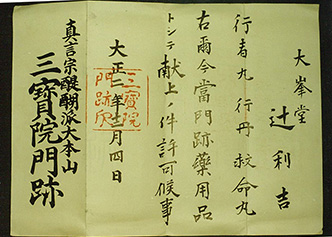 大峯堂
辻利吉
行者丸 行丹 救命丸
右爾今當門跡藥用品
トシテ献上ノ件許可候事
大正二年十二月四日
真言宗醍醐派大本山
三寶院門跡
三寶院
門跡印